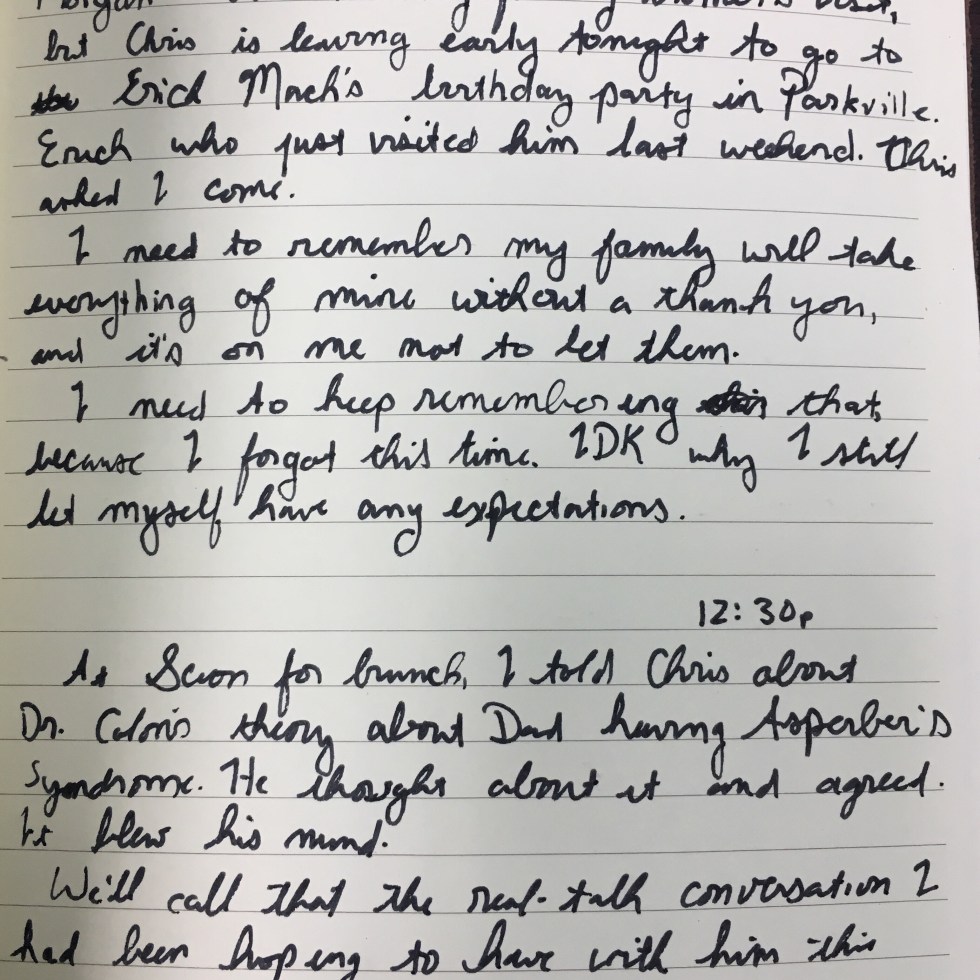 but Chris is leaving early tonight to go to
Erich Mach's birthday party in Parkville.
Erich who just visited him last weekend. Chris
asked I come.
I need to remember my family will take
everything of mine without a thank you,
and it's on me not to let them.
I need to keep remembering that,
because I forgot this time. IDK why I still
let myself have any expectations.
12:30p
At Scion for brunch, I told Chris about
Dr. Colon's theory about Dad having Asperber's
Syondrome. He thought about it and agreed.
It blew his mind.
We'll call that the real-talk conversation I
had been hoping to have with him this